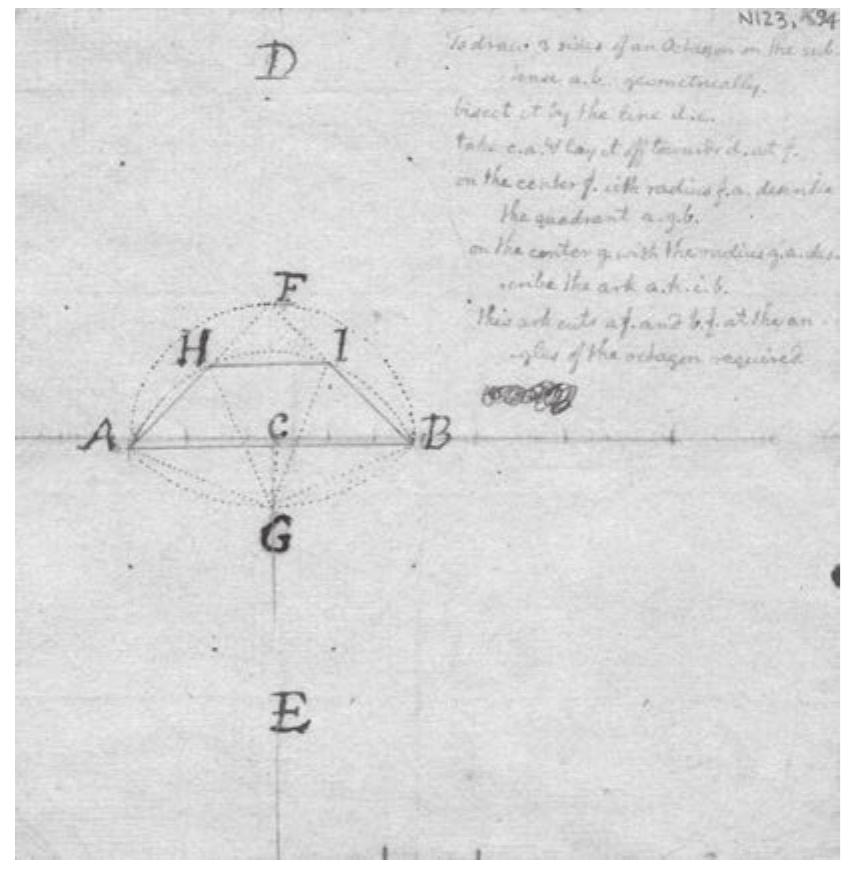 N123, K94
D
To draw 3 sides of an Octagon on the sub-
tense a.b. geometrically.
bisect it by the line d.e.
take c.a. & lay it off towards d. at f.
on the center f. with radius f.a. describe
the quadrant a.g.b.
on the center g. with the radius g.a. des-
cribe the ark a.h.i.b.
this ark cuts a f. and b.f. at the an-
gles of the octagon required
F
H I
A C B
G
E